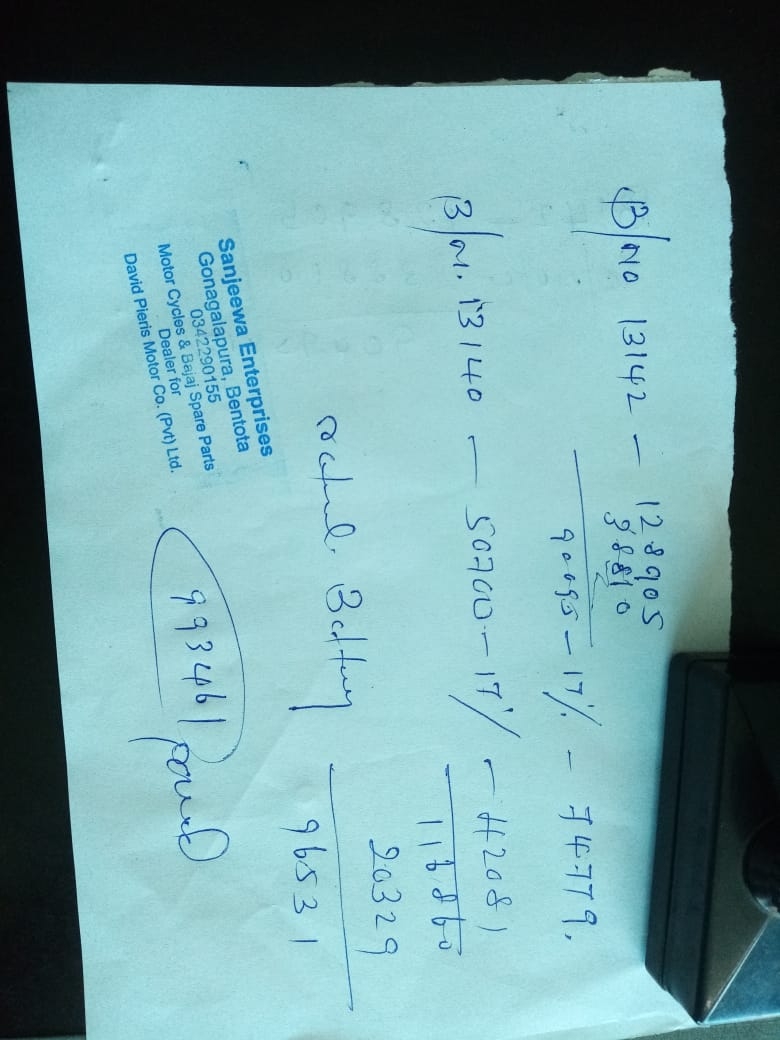 B/No 13142 – 128905
38810
90095 – 17% – 74779.
B/N. 13140 – 50700 – 17% – 42081
116860
Battery 20329
96531
Sanjeewa Enterprises
Gonagalapura, Bentota
0342290155
Motor Cycles & Bajaj Spare Parts
Dealer for
David Pieris Motor Co. (Pvt) Ltd.
993461